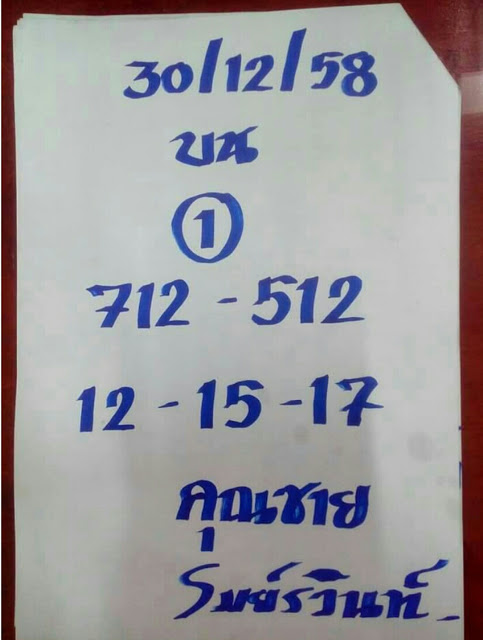 30/12/58
บน
1
712 - 512
12 - 15 - 17
คุณชาย
รมย์รวินท์